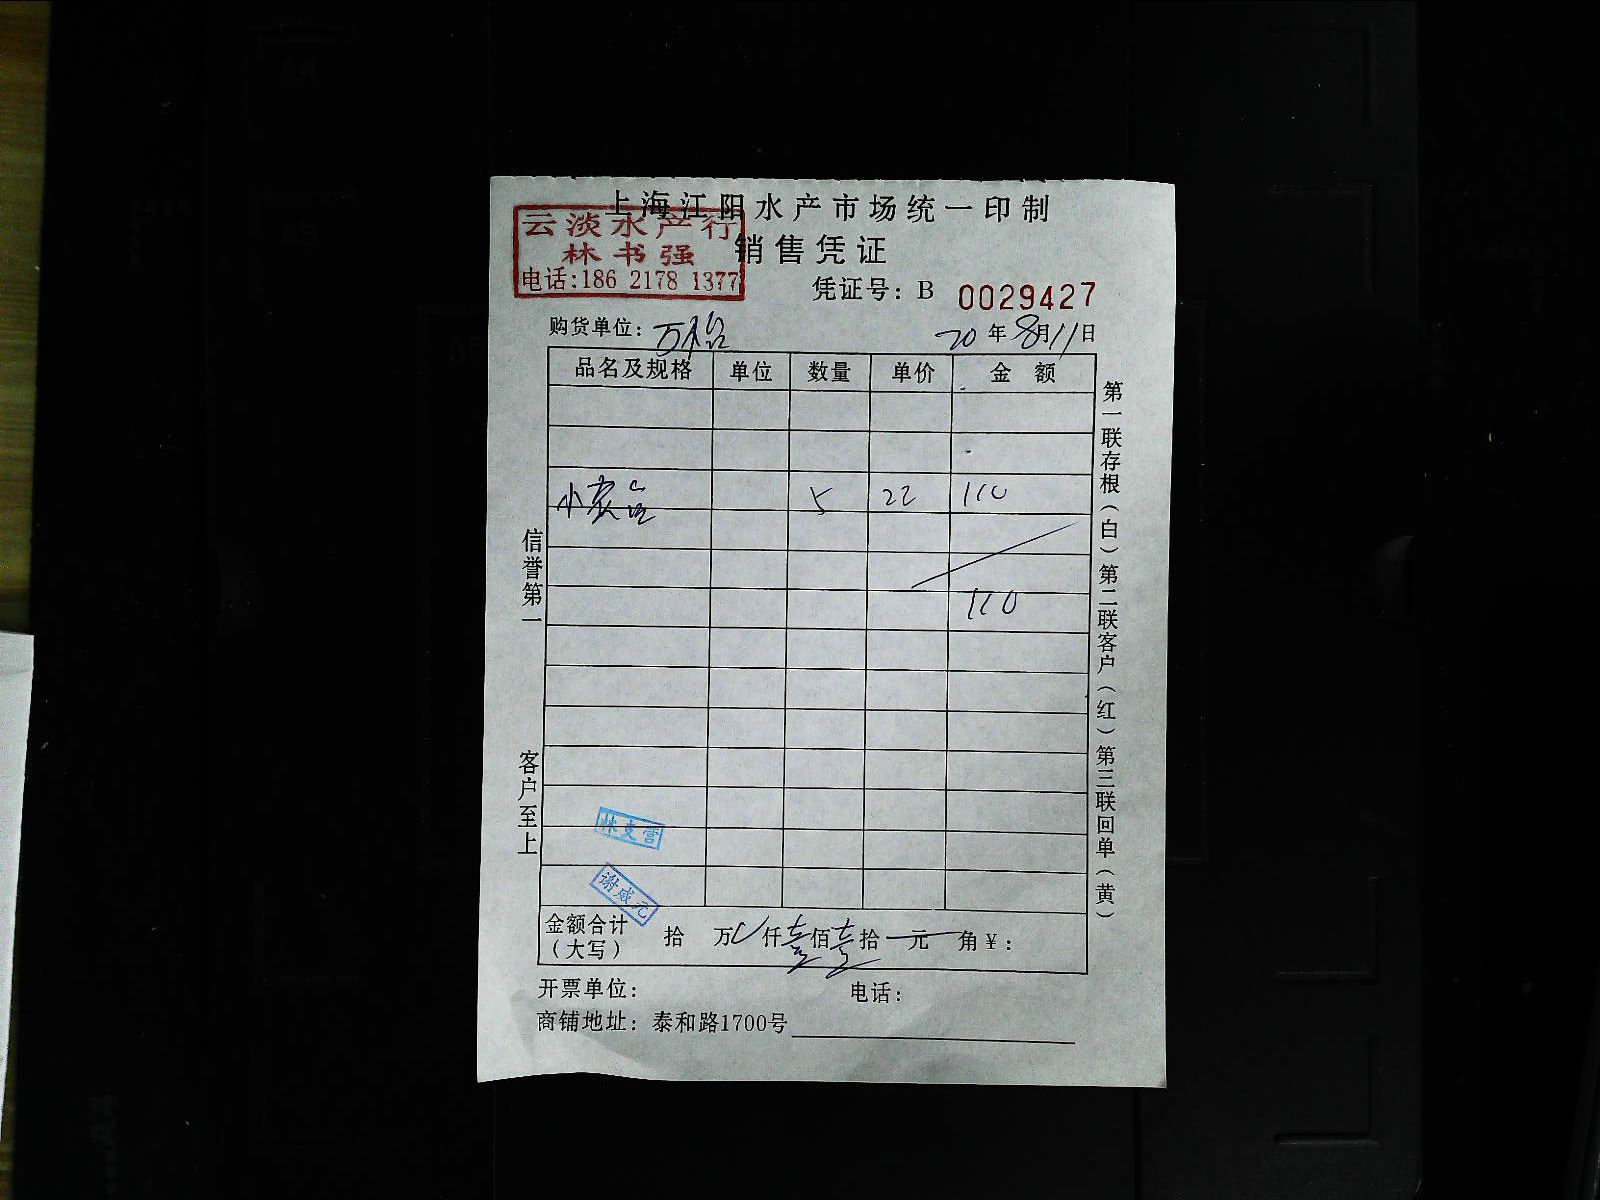 上海江阳水产市场统一印制
云淡水产行
林书强
电话:186 2178 1377
销售凭证
凭证号: B 0029427
购货单位: 万裕 20年8月11日
品名及规格 单位 数量 单价 金额
小 5 22 110
110
信誉第一
客户至上
第一联存根(白)第二联客户(红)第三联回单(黄)
谢咸元
金额合计 拾 万 仟壹佰壹拾 元 角¥:
(大写)
开票单位: 电话:
商铺地址: 泰和路1700号